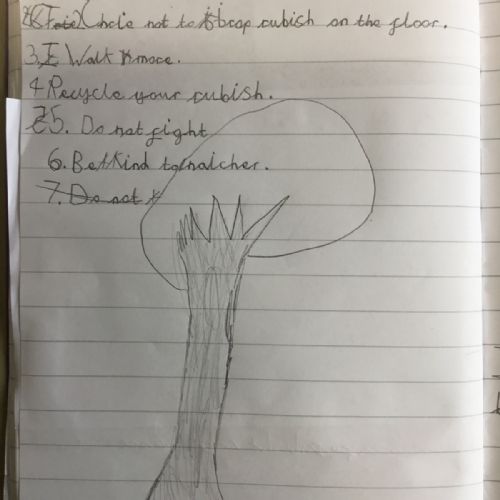 hole not to drop cubish on the floor.
3. I Walk more.
4 Recycle your cubish.
5. Do not fight
6. Be Kind to natcher.
7. Do not